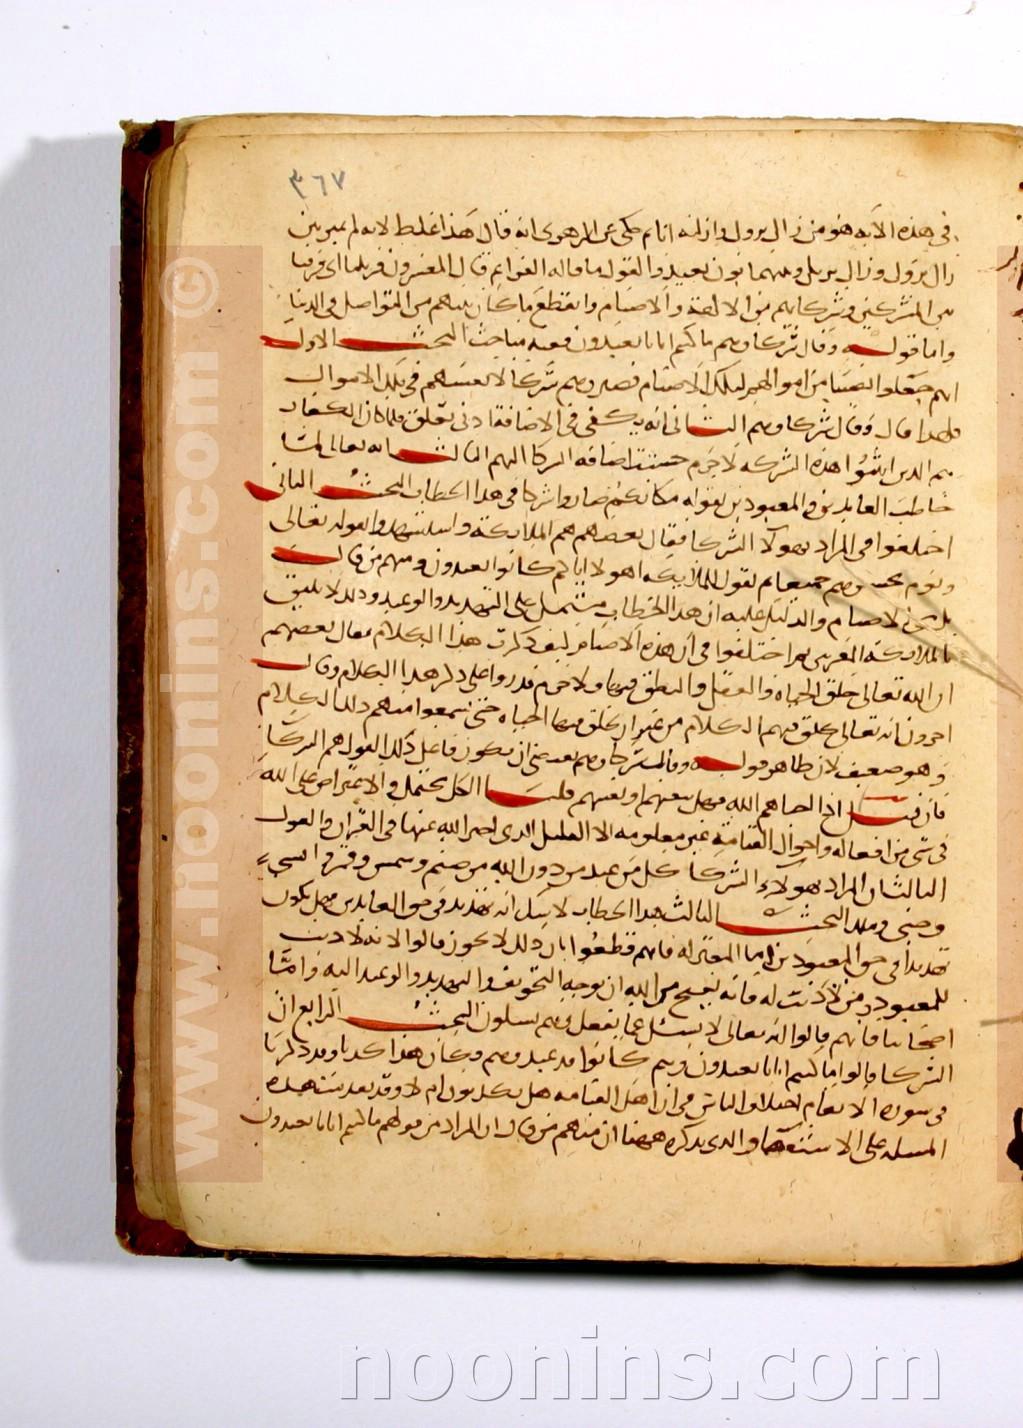 ٣٦٧
في هذه الآيه هو من زال يزول وازلته انا ثم حكى عن الازهرى انه قال هذا غلط لانه لم يميز بين
زال يزول وزال يزيل وبينهما بون بعيد والقول ما قاله الفرا ثم قال المفسرون فزيلنا اى فرقنا
بين المشركين وشركايهم من الالهة والاصنام وانقطع ما كان بينهم من التواصل فى الدنيا
واما قوله وقال شركاوهم ما كنتم ايانا تعبدون ففيه مباحث البحث الاول
انهم جعلوا نصيبا من اموالهم لتلك الاصنام فصيروهم شركا لانفسهم في تلك الاموال
فلهذا قال وقال شركاوهم الثانى انه يكفى في الاضافة ادنى تعلق فلما كان الكفار
هم الذين اثبتوا هذه الشركه لا جرم حسنت اضافه الشركا اليهم الثالث انه تعالى لما
خاطب العابدين والمعبودين بقوله مكانكم صاروا شركا في هذا الخطاب البحث الثانى
اختلفوا في المراد بهولا الشركا فقال بعضهم هم الملايكة واستشهدوا بقوله تعالى
ويوم نحشرهم جميعا ثم نقول للملايكه اهولا اياكم كانوا يعبدون ومنهم من قال
بل هى الاصنام والدليل عليه ان هذا الخطاب مشتمل على التهديد والوعيد وذلك لا يليق
بالملايكة المقربين ثم اختلفوا في ان هذه الاصنام كيف ذكرت هذا الكلام فقال بعضهم
ان الله تعالى خلق الحياة والعقل والنطق فيها فلا جرم قدروا على ذكر هذا الكلام وقال
اخرون انه تعالى يخلق فيهم الكلام من غير ان يخلق فيها الحياه حتى يسمعوا منهم ذلك الكلام
وهو ضعيف لان ظاهر قوله وقال شركاوهم يقتضى ان يكون فاعل ذلك القول هم الشركا
فان قيل اذا احياهم الله فهل يبقيهم او يفنيهم قلنا الكل محتمل ولا اعتراض على الله
في شى من افعاله واحوال القيامة غير معلومه الا القليل الذى اخبر الله عنها في القران والقول
الثالث ان المراد بهولاء الشركا كل من عبد من دون الله من صنم وشمس وقمر وانسي
وجنى وملك البحث الثالث هذا الخطاب لا شك انه تهديد في حق العابدين فهل يكون
تهديدا في حق المعبودين اما المعتزله فانهم قطعوا بان ذلك لا يجوز قالوا لانه لا ذنب
للمعبود ومن لا ذنب له فانه يقبح من الله ان يوجه التخويف والتهديد والوعيد اليه واما
اصحابنا فانهم قالوا انه تعالى لا يسئل عما يفعل وهم يسلون البحث الرابع ان
الشركا قالوا ما كنتم ايانا تعبدون وهم كانوا قد عبدوهم وكان هذا كذبا وقد ذكرنا
في سورة الانعام اختلاف الناس في ان اهل القيامه هل يكذبون ام لا وقد تقدمت هذه
المسله على الاستقصا والذى نذكره ههنا ان منهم من قال ان المراد من قولهم ما كنتم ايانا تعبدون
www.noonins.com ©
noonins.com